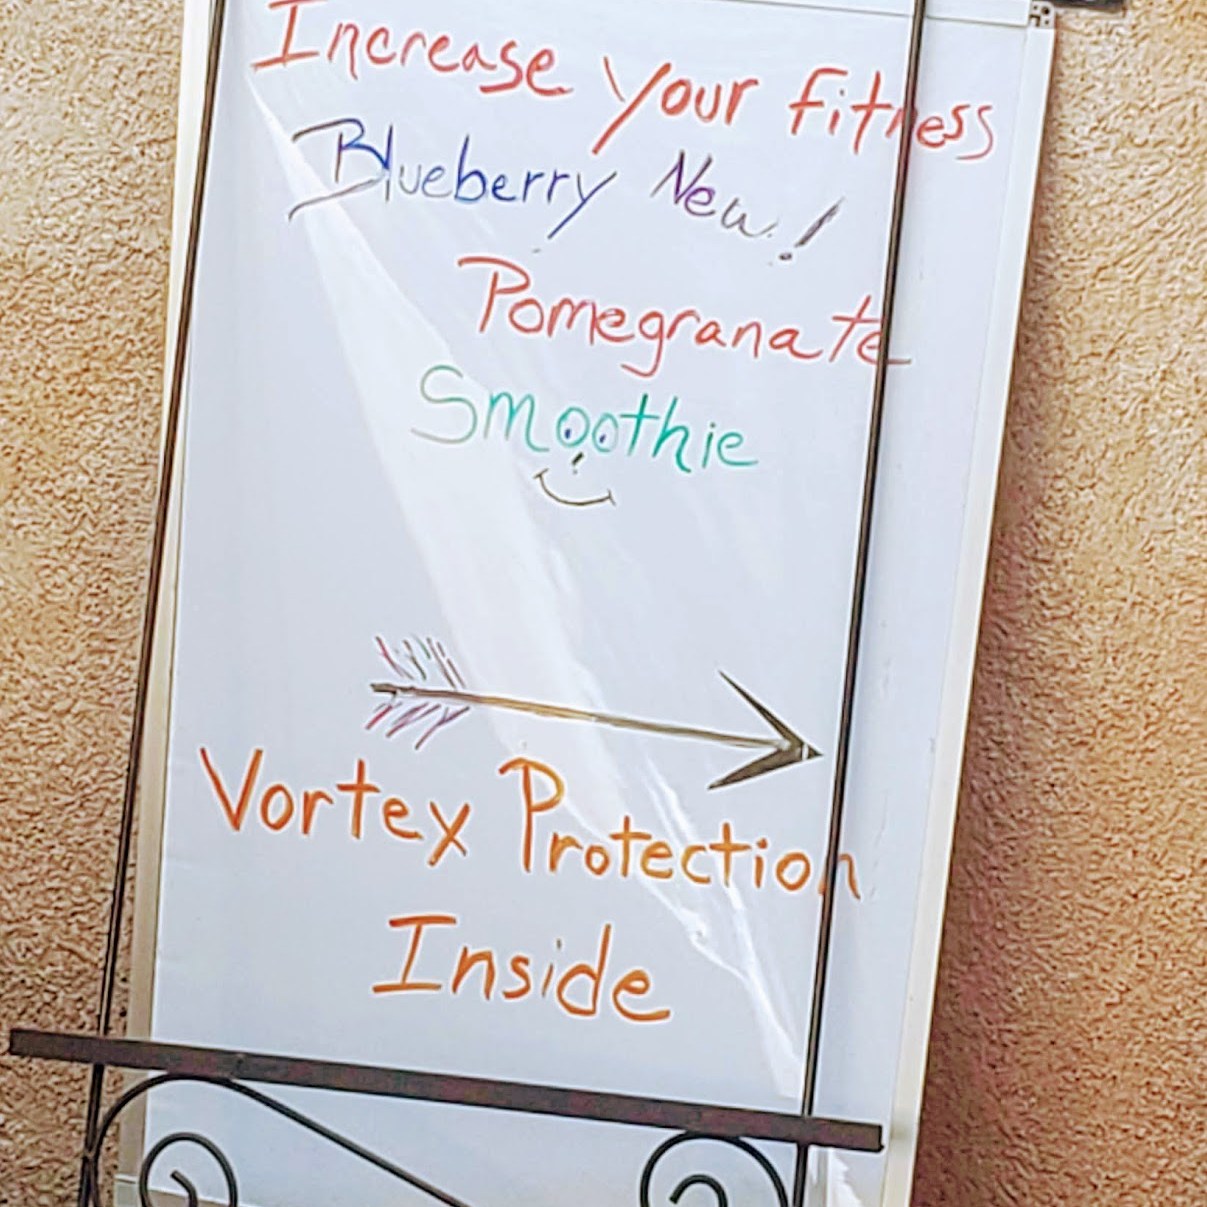 Increase your fitness
Blueberry New!
Pomegranate
Smoothie
Vortex Protection
Inside